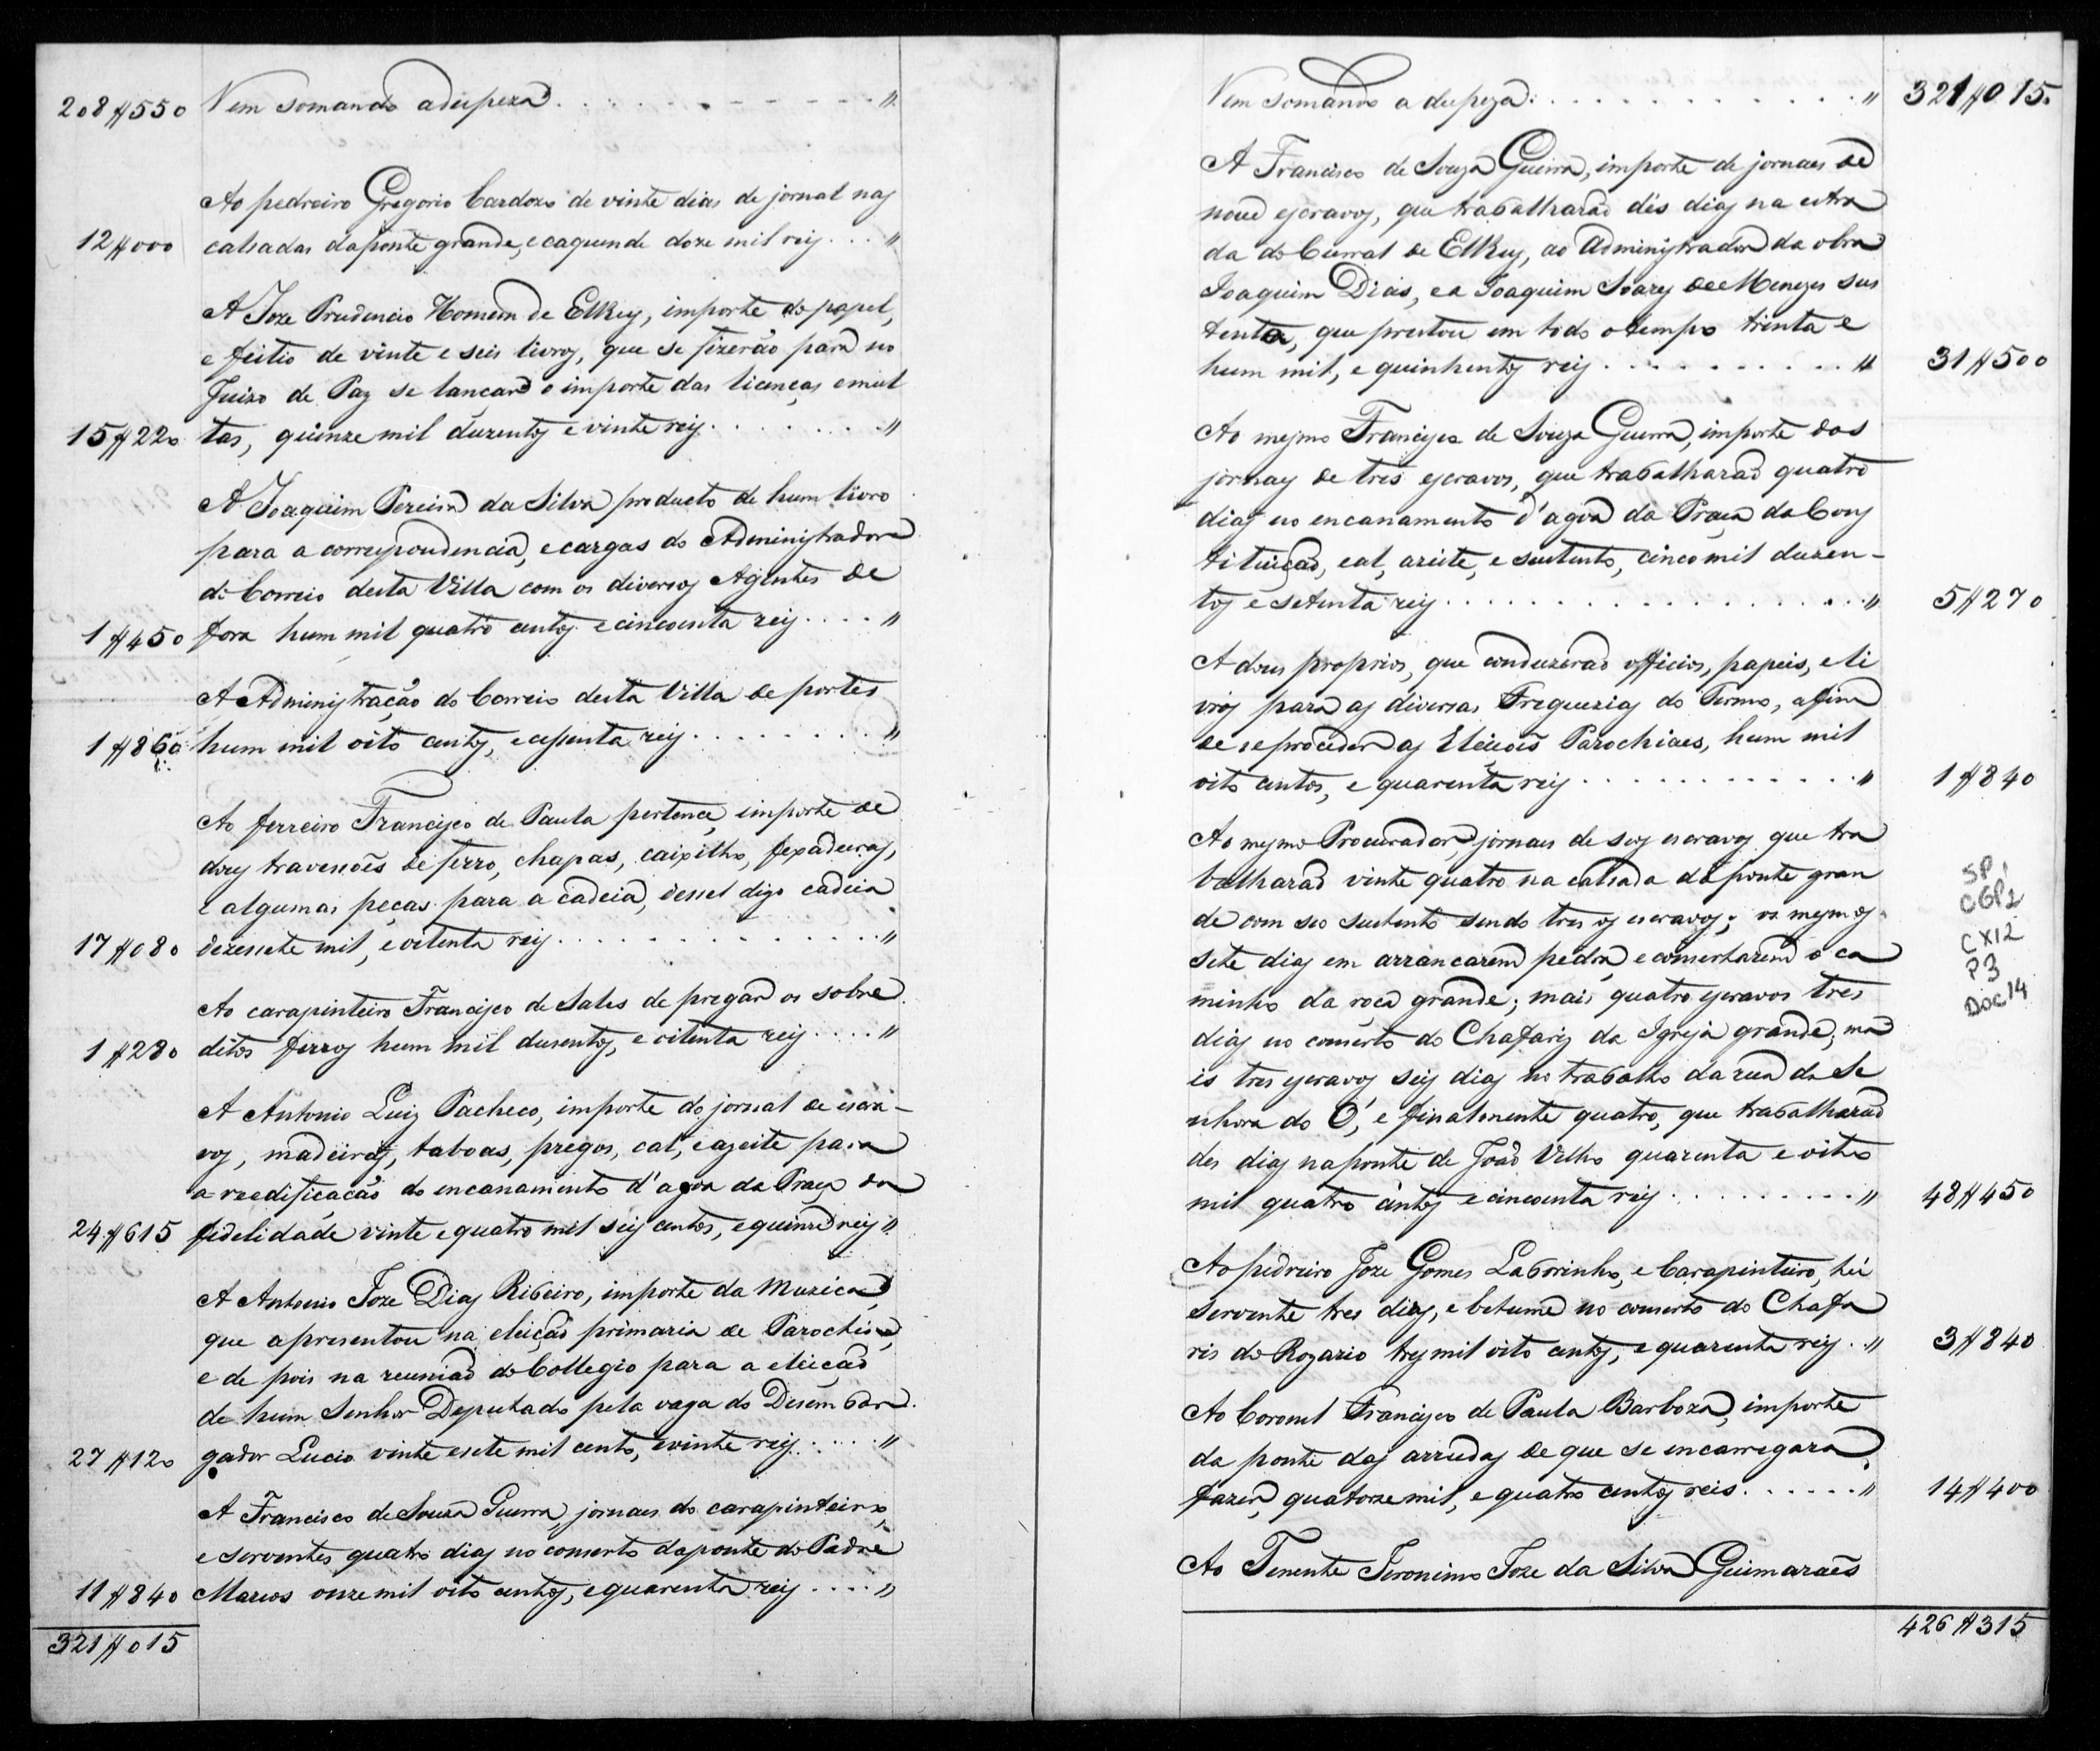 208$550 Vem somando a despeza . . . . . . . . . . . "
Ao pedreiro Gregorio Cardozo de vinte dias de jornal nas
12$000 calsadas da ponte grande, e caquende doze mil reis . . . "
A Joze Prudencio Homem de ElRey, importe do papel,
e feitio de vinte e seis livros, que se fizerão para no
Juizo de Paz se lançar o importe das licenças e mul
15$220 tas, quinze mil duzentos e vinte reis . . . . . . . "
A Joaquim Pereira da Silva producto de hum livro
para a correspondencia, e cargas do Administrador
do Correio desta Villa com os diversos Agentes de
1$450 fora hum mil quatro centos e cincoenta reis . . . . "
A Administração do Correio desta Villa de portes
1$860 hum mil oito centos, e cessenta reis . . . . . . . . "
Ao ferreiro Francisco de Paula pertence, importe de
dous travessões de ferro, chapas, caixilho, fexadeiras,
e algumas peças para a cadeia, dessel digo cadeia
17$080 dezessete mil, e oitenta reis . . . . . . . . . . . . . "
Ao carapinteiro Francisco de Sales de pregar os sobre
1$280 ditos ferros hum mil dusentos, e oitenta reis . . . . "
A Antonio Luiz Pacheco, importe do jornal de escra-
vos, madeiras, taboas, pregos, cal, e azeite para
a reedificação do encanamento d'agoa da Praça da
24$615 fidelidade vinte e quatro mil seis centos, e quinze reis "
A Antonio Joze Dias Ribeiro, importe da Muzica,
que apresentou na eleição primaria de Parochia,
e de pois na reunião do Collegio para a eleição
de hum Senhor Deputado pela vaga do Desembar
27$120 gador Lucio vinte e sete mil cento, e vinte reis . . . . . "
A Francisco de Souza Guerra, jornaes do carapinteiro,
e serventes quatro dias no conserto da ponte do Padre
11$840 Marcos onze mil oito centos, e quarenta reis . . . . "
321$015
Vem somando a despeza: . . . . . . . . . . . . " 321$015
A Francisco de Souza Guerra, importe de jornaes de
nove escravos, que trabalharão dés dias na estra
da do Curral de ElRey, ao Administrador da obra
Joaquim Dias, e a Joaquim Soares de Menezes sus
tento, que prestou em todo o tempo trinta e
hum mil, e quinhentos reis . . . . . . . . . . " 31$500
Ao mesmo Francisco de Souza Guerra, importe dos
jornaes de tres escravos, que trabalharão quatro
dias no encanamento d'agoa da Praça da Cons
tituição, cal, azeite, e sustento, cinco mil duzen-
tos e setenta reis . . . . . . . . . . . . . . . . . . . " 5$270
A dous proprios, que conduzirão officios, papeis, e li
vros para as diversas Freguezias do Termo, a fim
de se proceder as Eleições Parochiaes, hum mil
oito centos, e quarenta reis . . . . . . . . . . . . " 1$840
Ao mesmo Procurador, jornaes de seos escravos que tra
balharão vinte quatro na calsada da ponte gran
de com seo sustento sendo tres os escravos; os mesmos
sete dias em arrancarem pedra, e consertarem o ca
minho da roça grande; mais quatro escravos tres
dias no conserto do Chafariz da Igreja grande; ma
is tres escravos seis dias no trabalho da rua da Se
nhora do Ó, e finalmente quatro, que trabalharão
des dias na ponte de João Velho quarenta e oito
mil quatro centos e cincoenta reis . . . . . . . . . . " 48$450
SP,
CGP2
CX12
P3
Doc14
Ao pedreiro Joze Gomes Laborinho, e Carapinteiro, hú
servente tres dias, e betume no conserto do Chafa
ris do Rozario tres mil oito centos, e quarenta reis . . " 3$840
Ao Coronel Francisco de Paula Barboza, importe
da ponte das arrudas de que se encarregara
fazer, quatorze mil, e quatro centos reis . . . . . . " 14$400
Ao Tenente Jeronimo Joze da Silva Guimaraes
426$315